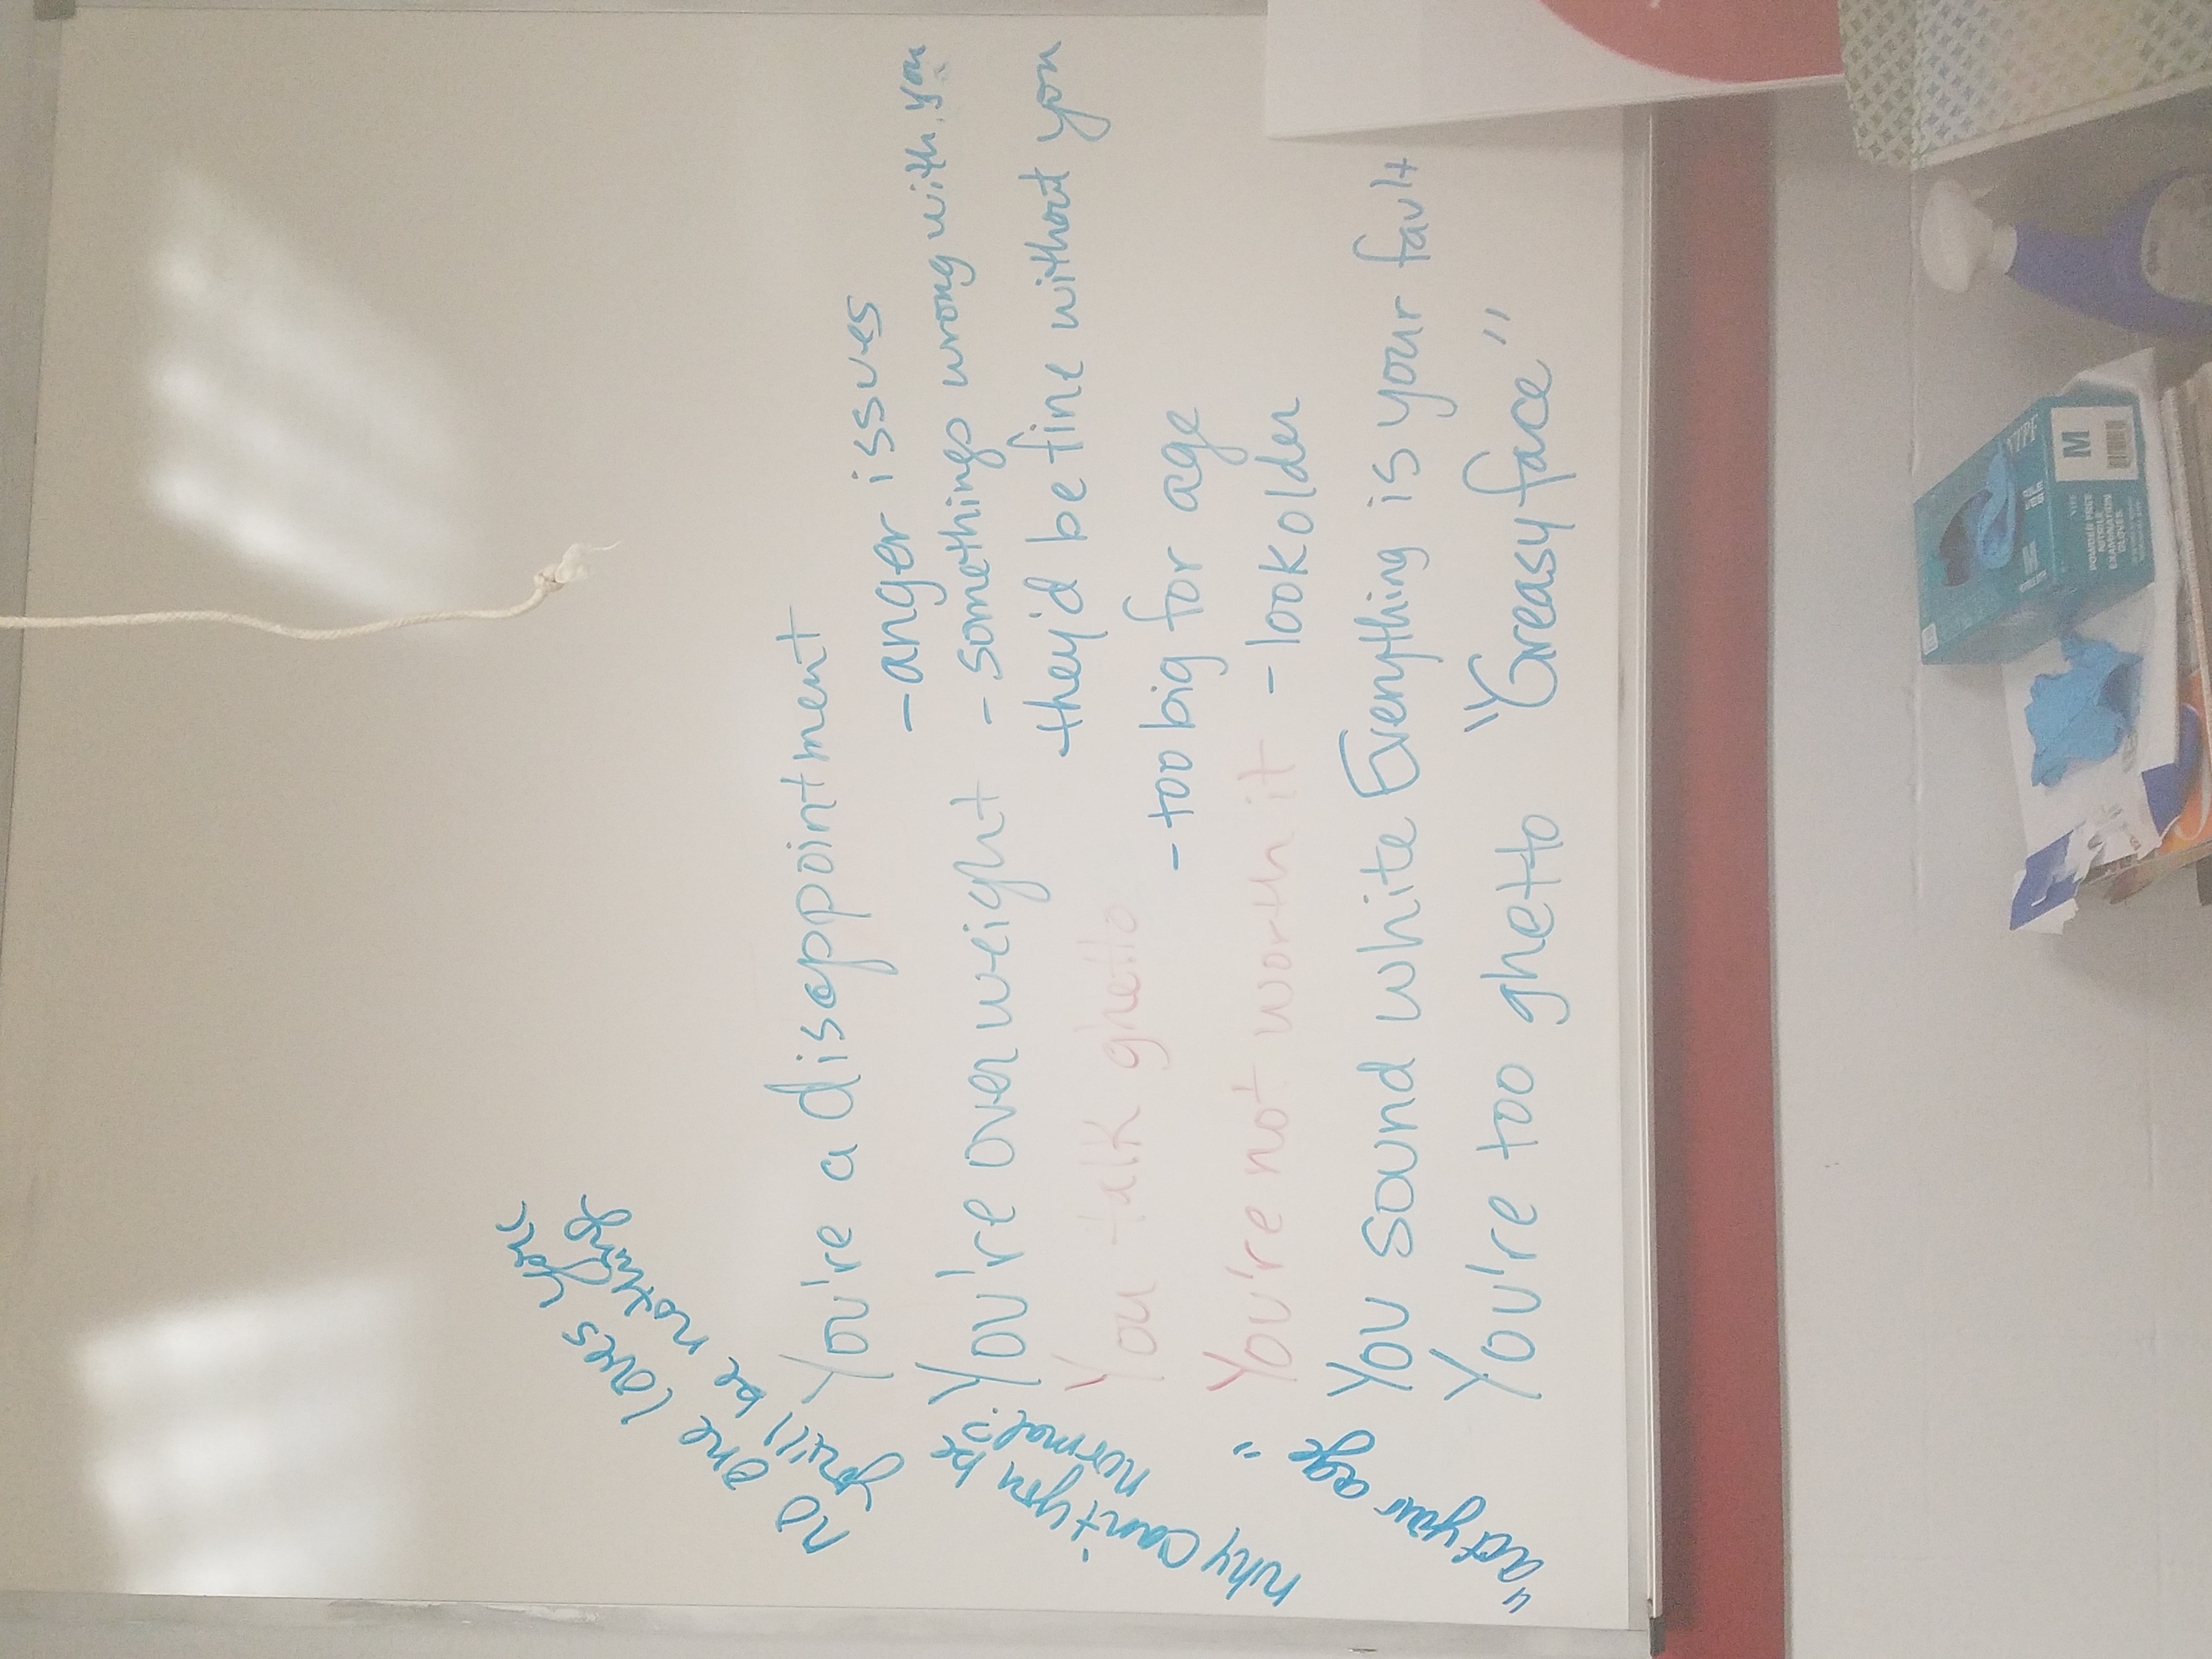 no one loves you
you'll be nothing
You're a disappointment
- anger issues
why can't you be normal?
You're overweight
- somethings wrong with you
they'd be fine without you
You talk ghetto
- too big for age
You're not worth it
- look older
"act your age"
You sound white
Everything is your fault
You're too ghetto
"Greasy face"
M
POWDER FREE
NITRILE
EXAMINATION
GLOVES